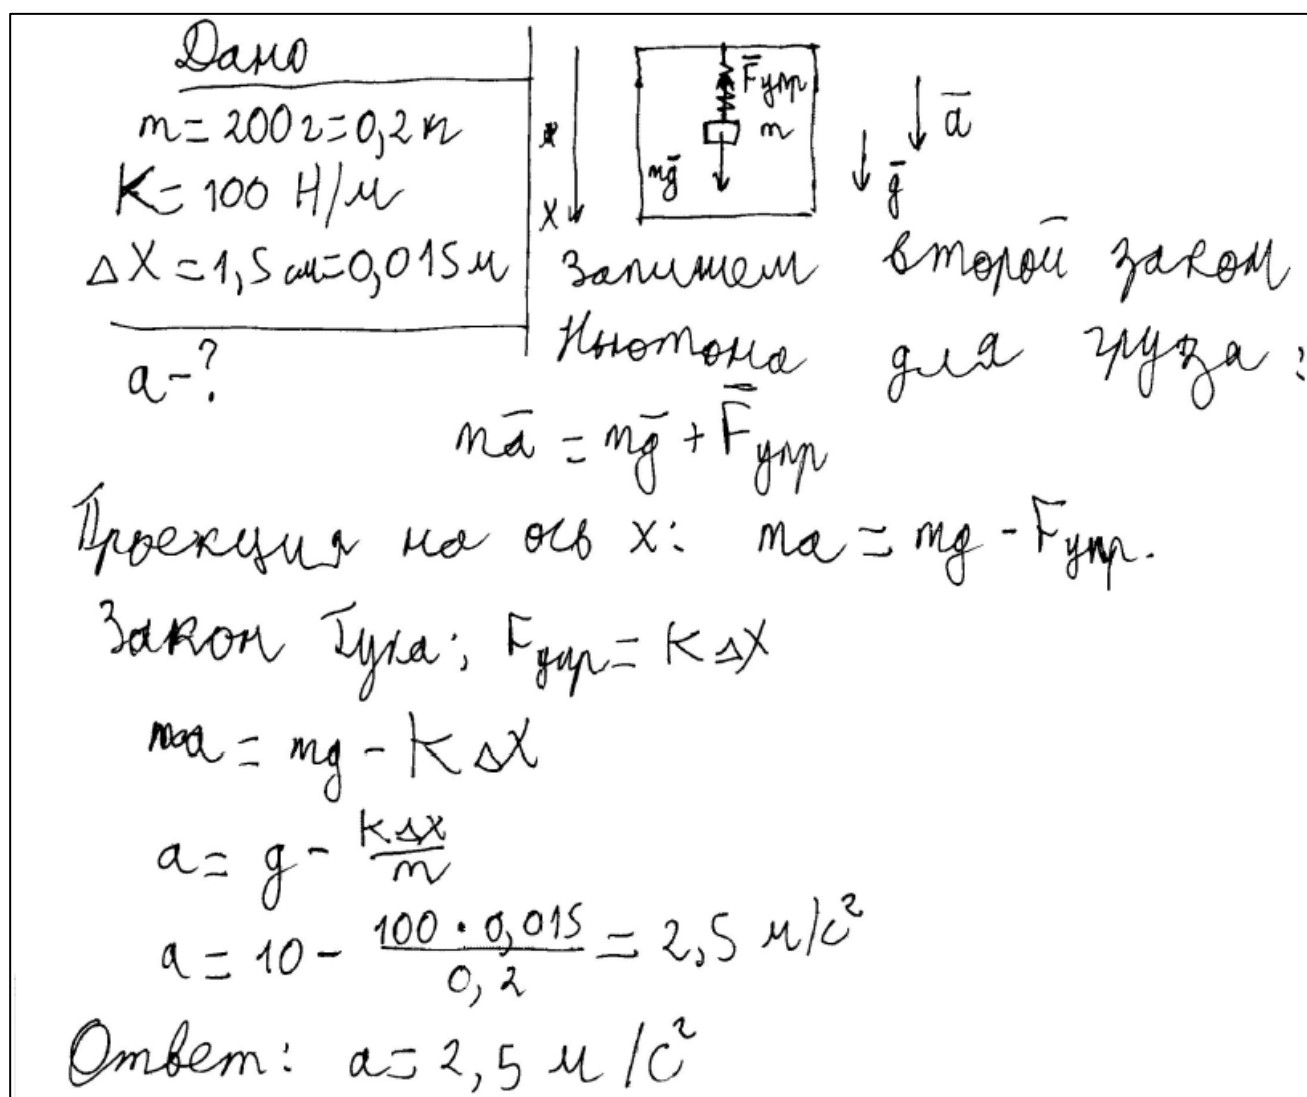 Дано
m = 200 г = 0,2 кг
K = 100 Н/м
ΔX = 1,5 см = 0,015 м
a - ?
X
F̄упр
m
mḡ
ā
ḡ
Запишем второй закон
Ньютона для груза:
mā = mḡ + F̄упр
Проекция на ось x: ma = mg - Fупр.
Закон Гука: Fупр = KΔX
ma = mg - KΔX
a = g - KΔX/m
a = 10 - 100 · 0,015/0,2 = 2,5 м/с²
Ответ: a = 2,5 м/с²